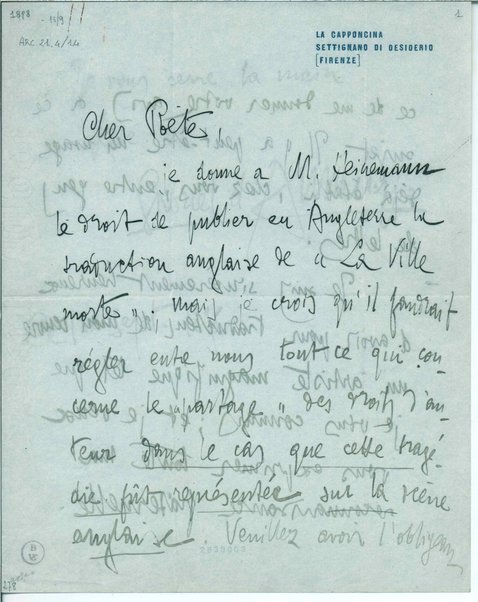 1898
- 15/9
ARC. 21. 4/14
1.
LA CAPPONCINA
SETTIGNANO DI DESIDERIO
(FIRENZE)
Cher Poète,
je donne a M. Heinemann
le droit de publier en Angleterre la
traduction anglaise de « La Ville
morte ». mais je crois qu'il faudrait
régler entre nous tout ce qui con
cerne le "partage" des droits d'au
teur dans le cas que cette tragé
die fût représentée sur la scène
anglaise. Veuillez avoir l'obligean
278